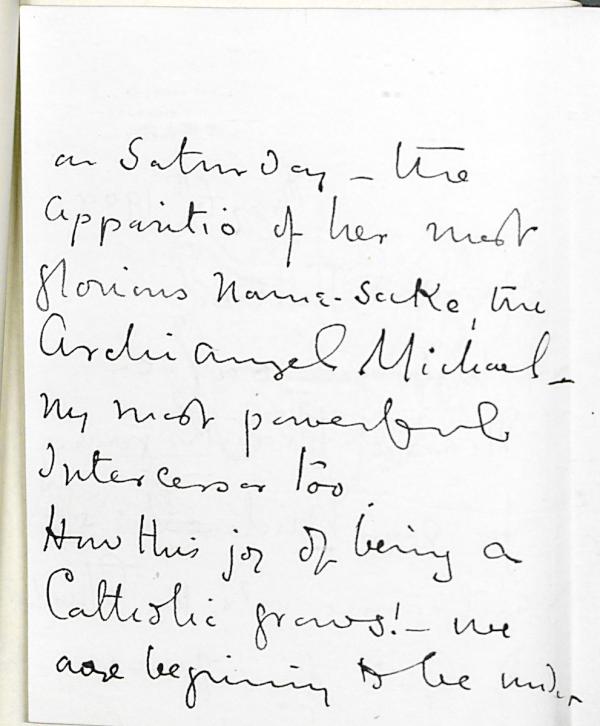 on Saturday – the
Apparitio of her most
glorious Name-sake, the
Archangel Michael –
my most powerful
Intercessor too.
How this joy of being a
Catholic grows! – we
are beginning to be